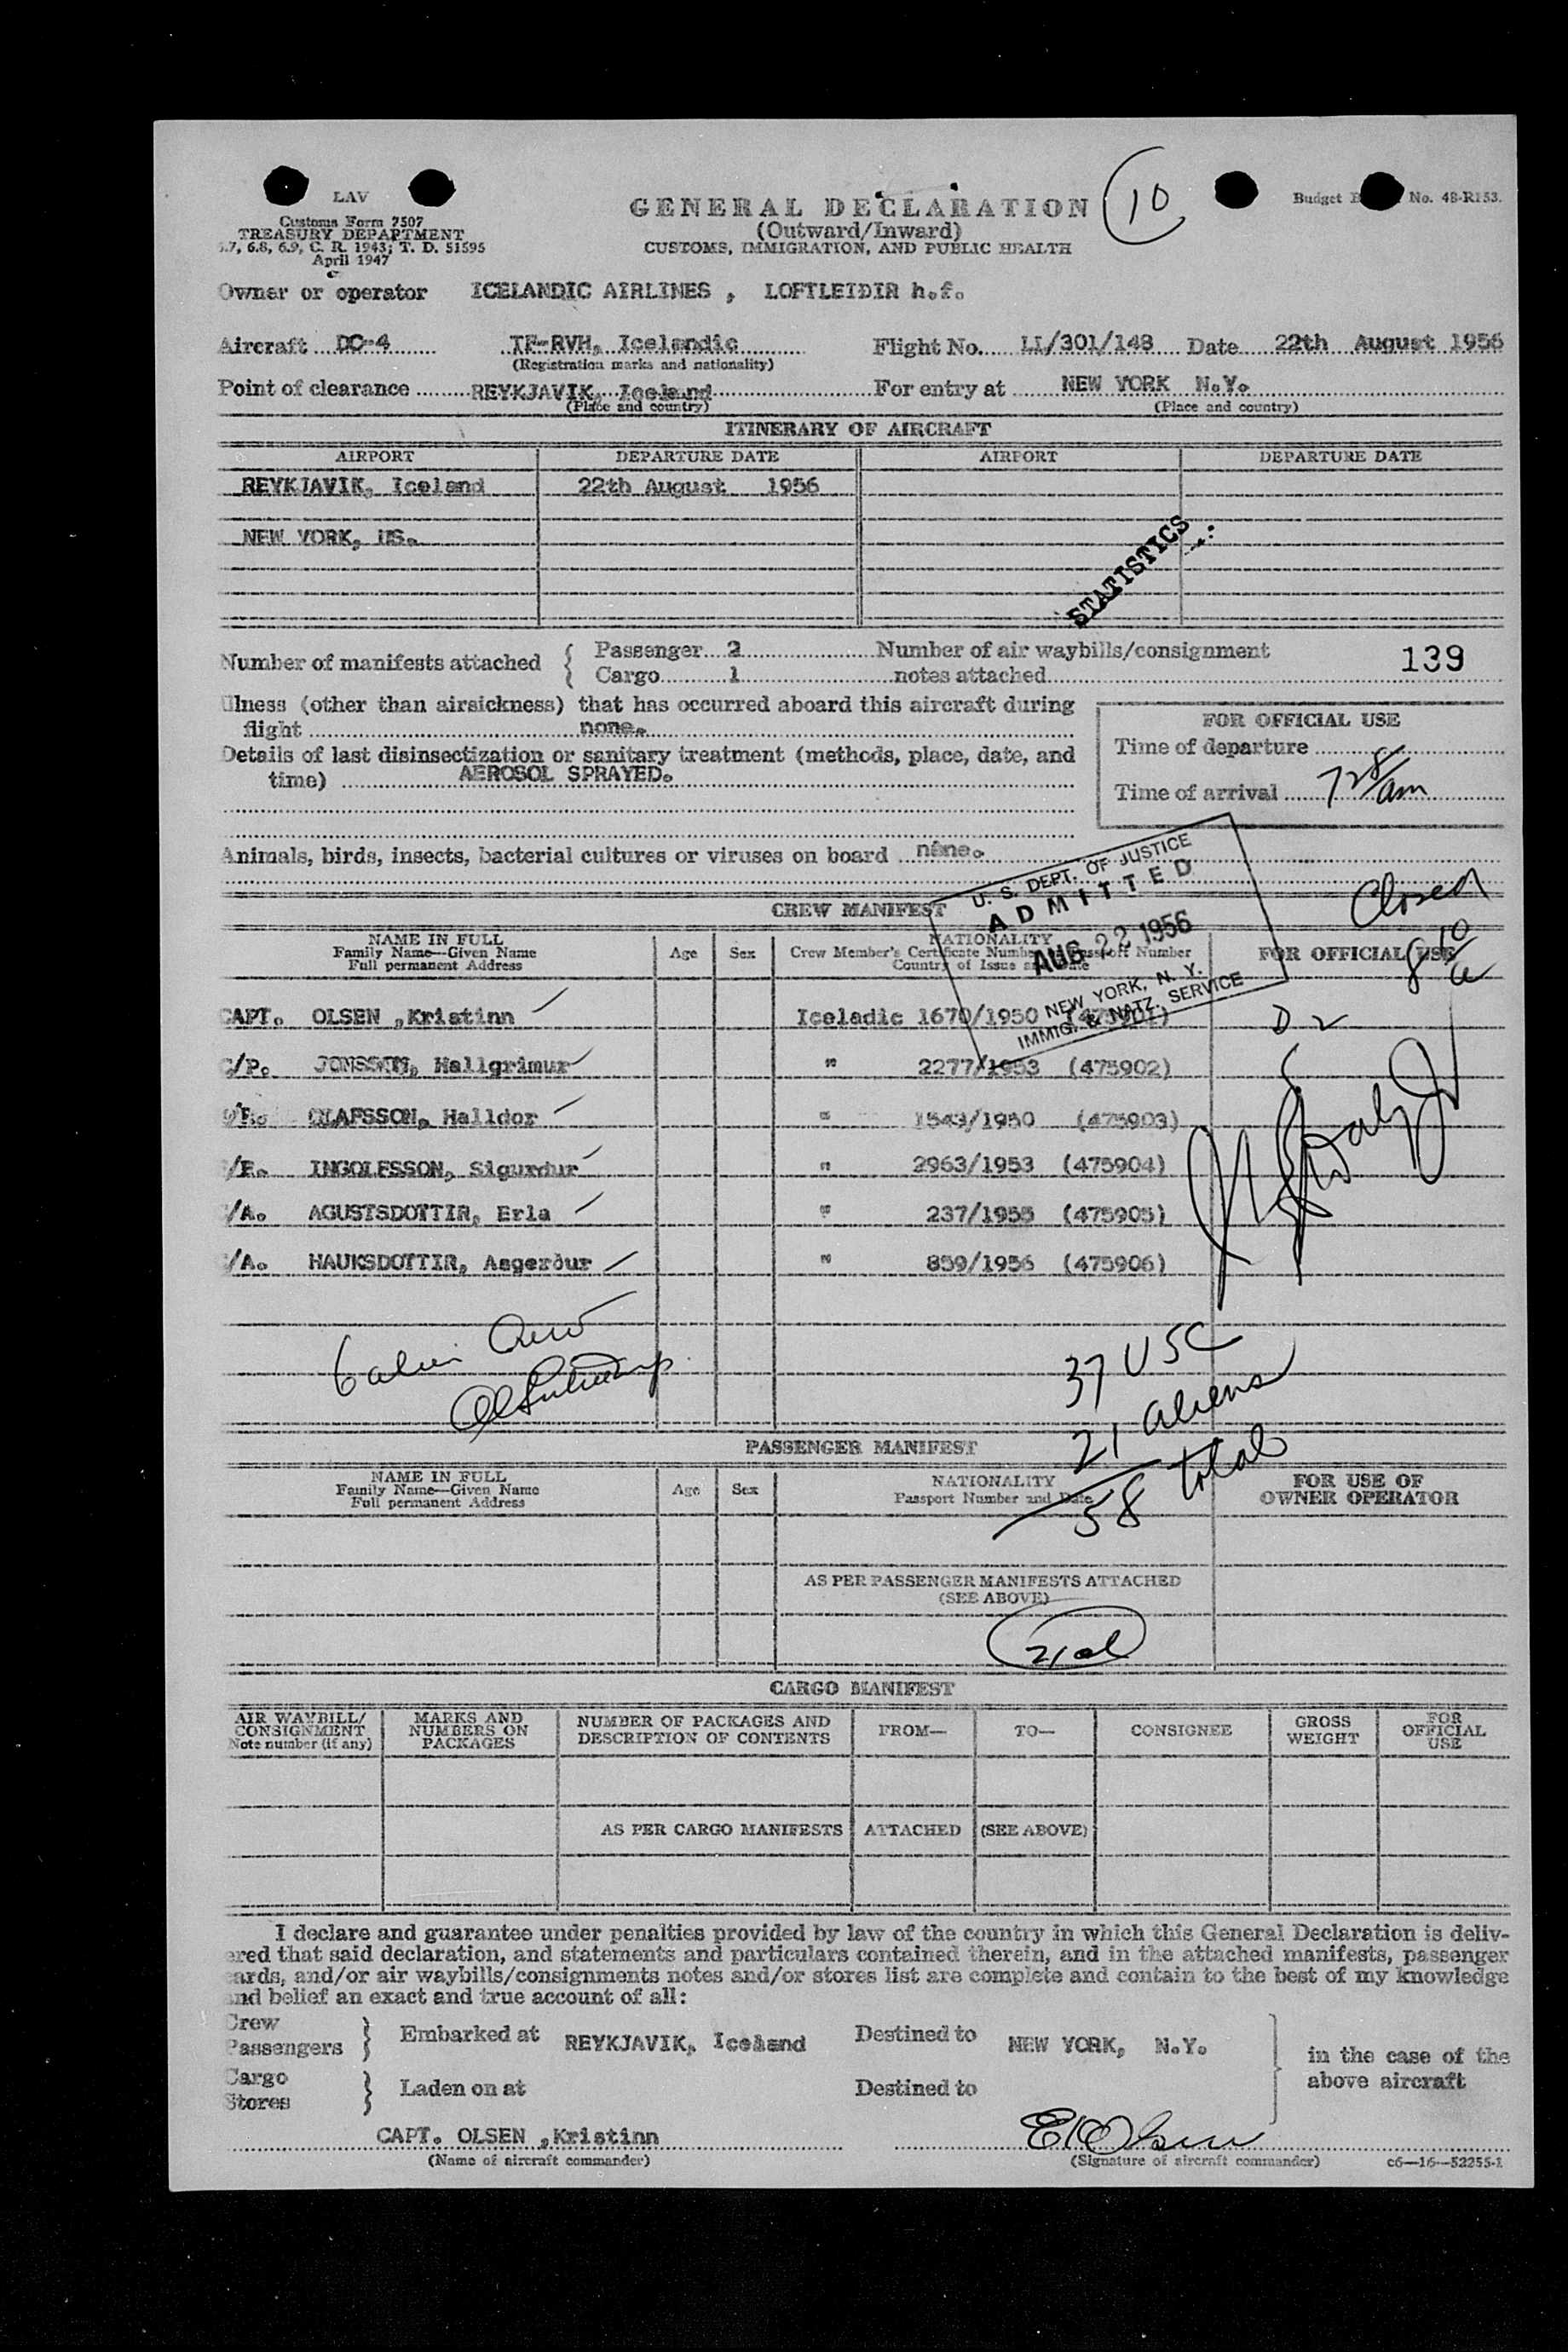 LAV
Customs Form 7507
TREASURY DEPARTMENT
.7, 6.8, 6.9, C. R. 1943; T. D. 51595
April 1947
GENERAL DECLARATION
(Outward/Inward)
CUSTOMS, IMMIGRATION, AND PUBLIC HEALTH
10
Budget B No. 48-R153.
Owner or operator ICELANDIC AIRLINES , LOFTLEIDIR h.f.
Aircraft DC-4 TF-RVH, Icelandic Flight No. LL/301/148 Date 22th August 1956
(Registration marks and nationality)
Point of clearance REYKJAVIK, Iceland For entry at NEW YORK N.Y.
(Place and country) (Place and country)
ITINERARY OF AIRCRAFT
AIRPORT DEPARTURE DATE AIRPORT DEPARTURE DATE
REYKJAVIK, Iceland 22th August 1956
NEW YORK, US.
STATISTICS
Number of manifests attached { Passenger 2 Number of air waybills/consignment
Cargo 1 notes attached
139
Illness (other than airsickness) that has occurred aboard this aircraft during
flight none.
Details of last disinsectization or sanitary treatment (methods, place, date, and
time) AEROSOL SPRAYED.
FOR OFFICIAL USE
Time of departure
Time of arrival 728/am
Animals, birds, insects, bacterial cultures or viruses on board none.
U. S. DEPT. OF JUSTICE
ADMITTED
AUG 22 1956
NEW YORK, N. Y.
IMMIG. & NATZ. SERVICE
Closed
8 10/a
CREW MANIFEST
NAME IN FULL
Family Name—Given Name
Full permanent Address
Age Sex
NATIONALITY
Crew Member's Certificate Number
Country of Issue
FOR OFFICIAL USE
CAPT. OLSEN ,Kristinn Iceladic 1670/1950 (475901) D 2
C/P. JONSSON, Hallgrimur " 2277/1953 (475902)
OLAFSSON, Halldor " 1543/1950 (475903)
/E. INGOLFSSON, Sigurdur " 2963/1953 (475904)
/A. AGUSTSDOTTIR, Erla " 237/1955 (475905)
/A. HAUKSDOTTIR, Asgerður " 859/1956 (475906)
6 alien Crew
37 USC
21 aliens
58 total
PASSENGER MANIFEST
NAME IN FULL
Family Name—Given Name
Full permanent Address
Age Sex
NATIONALITY
Passport Number and Date
FOR USE OF
OWNER OPERATOR
AS PER PASSENGER MANIFESTS ATTACHED
(SEE ABOVE)
21 al
CARGO MANIFEST
AIR WAYBILL/
CONSIGNMENT
Note number (if any)
MARKS AND
NUMBERS ON
PACKAGES
NUMBER OF PACKAGES AND
DESCRIPTION OF CONTENTS
FROM— TO— CONSIGNEE
GROSS
WEIGHT
FOR
OFFICIAL
USE
AS PER CARGO MANIFESTS ATTACHED (SEE ABOVE)
I declare and guarantee under penalties provided by law of the country in which this General Declaration is deliv-
ered that said declaration, and statements and particulars contained therein, and in the attached manifests, passenger
cards, and/or air waybills/consignments notes and/or stores list are complete and contain to the best of my knowledge
and belief an exact and true account of all:
Crew
Passengers } Embarked at REYKJAVIK, Iceland Destined to NEW YORK, N.Y.
Cargo
Stores } Laden on at Destined to
in the case of the
above aircraft
CAPT. OLSEN ,Kristinn
(Name of aircraft commander)
EKOlsen
(Signature of aircraft commander)
c6—16—52255-1